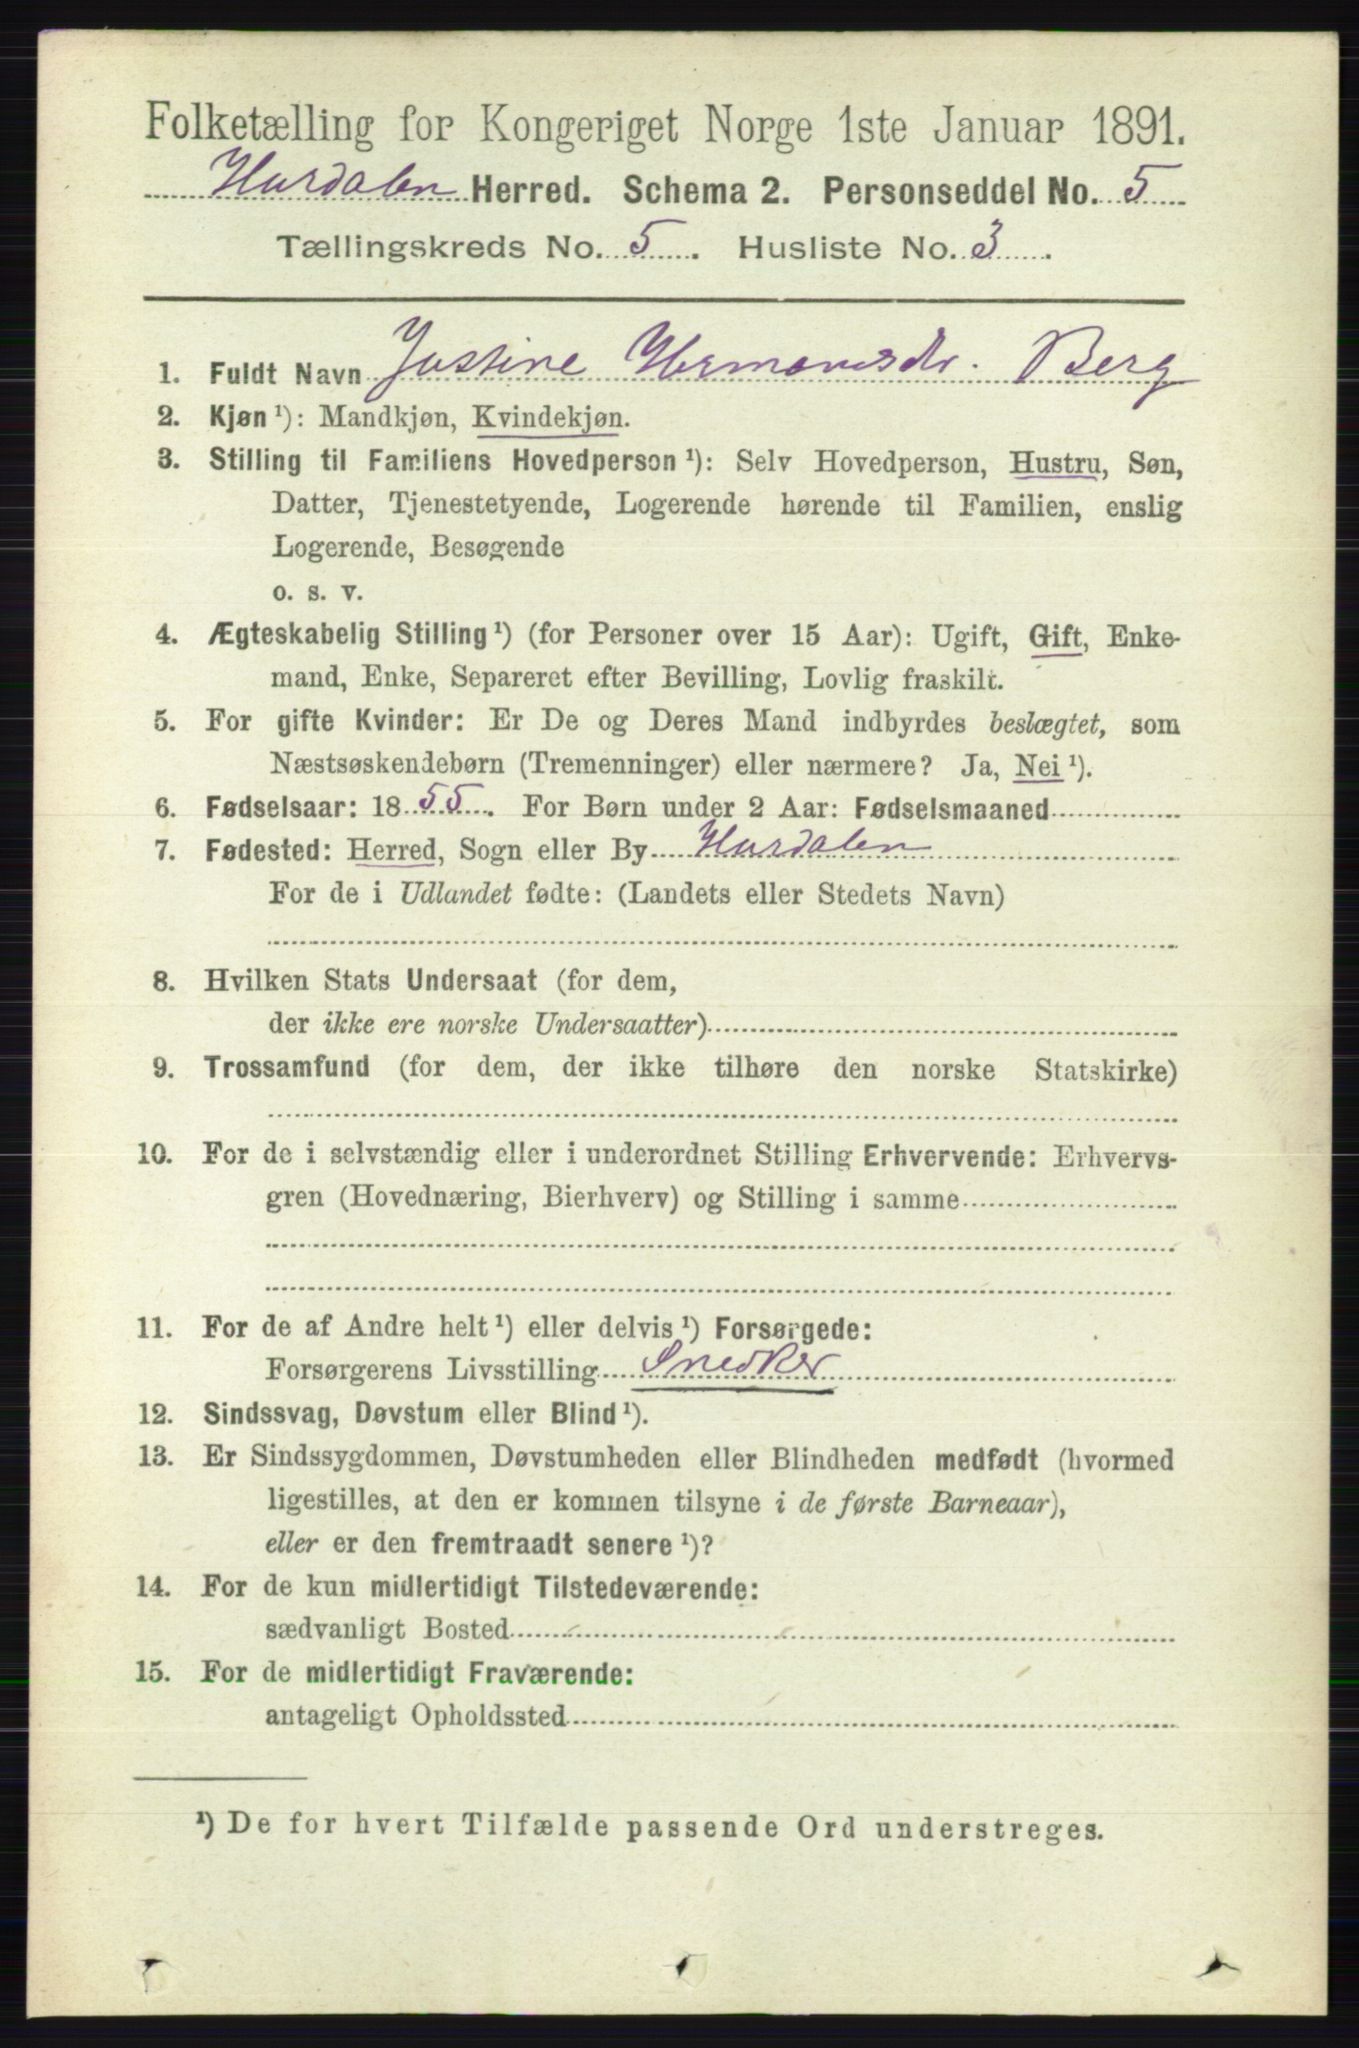 Folketælling for Kongeriget Norge 1ste Januar 1891.
Hurdalen Herred. Schema 2. Personseddel No. 5
Tællingskreds No. 5. Husliste No. 3.
1. Fuldt Navn Justine Hermansdr. Berg
2. Kjøn ¹): Mandkjøn, Kvindekjøn.
3. Stilling til Familiens Hovedperson ¹): Selv Hovedperson, Hustru, Søn,
Datter, Tjenestetyende, Logerende hørende til Familien, enslig
Logerende, Besøgende
o. s. v.
4. Ægteskabelig Stilling ¹) (for Personer over 15 Aar): Ugift, Gift, Enke-
mand, Enke, Separeret efter Bevilling, Lovlig fraskilt.
5. For gifte Kvinder: Er De og Deres Mand indbyrdes beslægtet, som
Næstsøskendebørn (Tremenninger) eller nærmere? Ja, Nei ¹).
6. Fødselsaar: 1855. For Børn under 2 Aar: Fødselsmaaned
7. Fødested: Herred, Sogn eller By Hurdalen
For de i Udlandet fødte: (Landets eller Stedets Navn)
8. Hvilken Stats Undersaat (for dem,
der ikke ere norske Undersaatter)
9. Trossamfund (for dem, der ikke tilhøre den norske Statskirke)
10. For de i selvstændig eller i underordnet Stilling Erhvervende: Erhvervs-
gren (Hovednæring, Bierhverv) og Stilling i samme
11. For de af Andre helt ¹) eller delvis ¹) Forsørgede:
Forsørgerens Livsstilling Snedker
12. Sindssvag, Døvstum eller Blind ¹).
13. Er Sindssygdommen, Døvstumheden eller Blindheden medfødt (hvormed
ligestilles, at den er kommen tilsyne i de første Barneaar),
eller er den fremtraadt senere ¹)?
14. For de kun midlertidigt Tilstedeværende:
sædvanligt Bosted
15. For de midlertidigt Fraværende:
antageligt Opholdssted
¹) De for hvert Tilfælde passende Ord understreges.